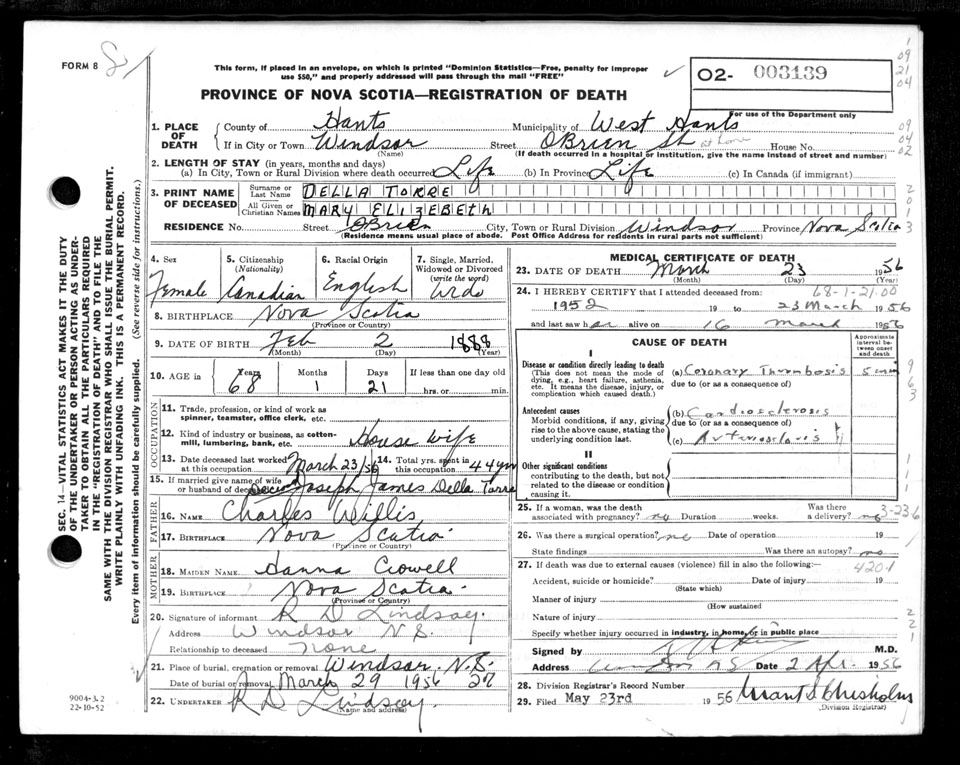 FORM 8
This form, if placed in an envelope, on which is printed "Dominion Statistics—Free, penalty for improper
use $50," and properly addressed will pass through the mail "FREE"
02- 003139
PROVINCE OF NOVA SCOTIA—REGISTRATION OF DEATH
For use of the Department only
1. PLACE OF DEATH County of Hants Municipality of West Hants
If in City or Town Windsor (Name) Street OBrien St at home House No.
(If death occurred in a hospital or institution, give the name instead of street and number)
2. LENGTH OF STAY (in years, months and days)
(a) In City, Town or Rural Division where death occurred Life (b) In Province Life (c) In Canada (if immigrant)
3. PRINT NAME OF DECEASED Surname or Last Name DELLA TORRE
All Given or Christian Names MARY ELIZEBETH
RESIDENCE No. Street OBrien City, Town or Rural Division Windsor Province Nova Scotia
(Residence means usual place of abode. Post Office Address for residents in rural parts not sufficient)
4. Sex Female
5. Citizenship (Nationality) Canadian
6. Racial Origin English
7. Single, Married, Widowed or Divorced (write the word) Wido
8. BIRTHPLACE Nova Scotia
(Province or Country)
9. DATE OF BIRTH Feb 2 1888
(Month) (Day) (Year)
10. AGE in Years 68 Months 1 Days 21 If less than one day old
hrs. or min.
OCCUPATION
11. Trade, profession, or kind of work as
spinner, teamster, office clerk, etc.
12. Kind of industry or business, as cotton-
mill, lumbering, bank, etc. House wife
13. Date deceased last worked at this occupation March 23/56 14. Total yrs. spent in this occupation 44 yrs
15. If married give name of wife
or husband of deceased Joseph James Della Torre
FATHER
16. NAME Charles Willis
17. BIRTHPLACE Nova Scotia
(Province or Country)
MOTHER
18. MAIDEN NAME Hanna Crowell
19. BIRTHPLACE Nova Scotia
(Province or Country)
20. Signature of informant R D Lindsay
Address Windsor N.S.
Relationship to deceased none
21. Place of burial, cremation or removal Windsor. N.S.
Date of burial or removal March 29 1956
22. UNDERTAKER R D Lindsay.
(Name and address)
MEDICAL CERTIFICATE OF DEATH
23. DATE OF DEATH March 23 1956
(Month) (Day) (Year)
24. I HEREBY CERTIFY that I attended deceased from: 68-1-21.00
1952 19 to 23 March 1956
and last saw her alive on 16 March 1956
CAUSE OF DEATH
Approximate interval between onset and death
I
Disease or condition directly leading to death
(This does not mean the mode of
dying, e.g., heart failure, asthenia,
etc. It means the disease, injury, or
complication which caused death.)
(a) Coronary Thrombosis 5 min
due to (or as a consequence of)
Antecedent causes
Morbid conditions, if any, giving
rise to the above cause, stating the
underlying condition last.
(b) Cardiosclerosis
due to (or as a consequence of)
(c)
II
Other significant conditions
contributing to the death, but not
related to the disease or condition
causing it.
25. If a woman, was the death associated with pregnancy? no Duration weeks. Was there a delivery? no 3-236
26. Was there a surgical operation? no Date of operation 19
State findings Was there an autopsy? no
27. If death was due to external causes (violence) fill in also the following:— 420-1
Accident, suicide or homicide? Date of injury 19
(State which)
Manner of injury
(How sustained
Nature of injury
Specify whether injury occurred in industry, in home, or in public place
Signed by M.D.
Address Date 2 Apr. 1956
28. Division Registrar's Record Number
29. Filed May 23rd 1956 Chisholm
(Division Registrar)
SEC. 14—VITAL STATISTICS ACT MAKES IT THE DUTY
OF THE UNDERTAKER OR PERSON ACTING AS UNDER-
TAKER TO OBTAIN ALL THE PARTICULARS REQUIRED
IN THE "REGISTRATION OF DEATH" AND TO FILE THE
SAME WITH THE DIVISION REGISTRAR WHO SHALL ISSUE THE BURIAL PERMIT.
WRITE PLAINLY WITH UNFADING INK. THIS IS A PERMANENT RECORD.
Every item of information should be carefully supplied. (See reverse side for instructions.)
9004-3.2
22-10-52